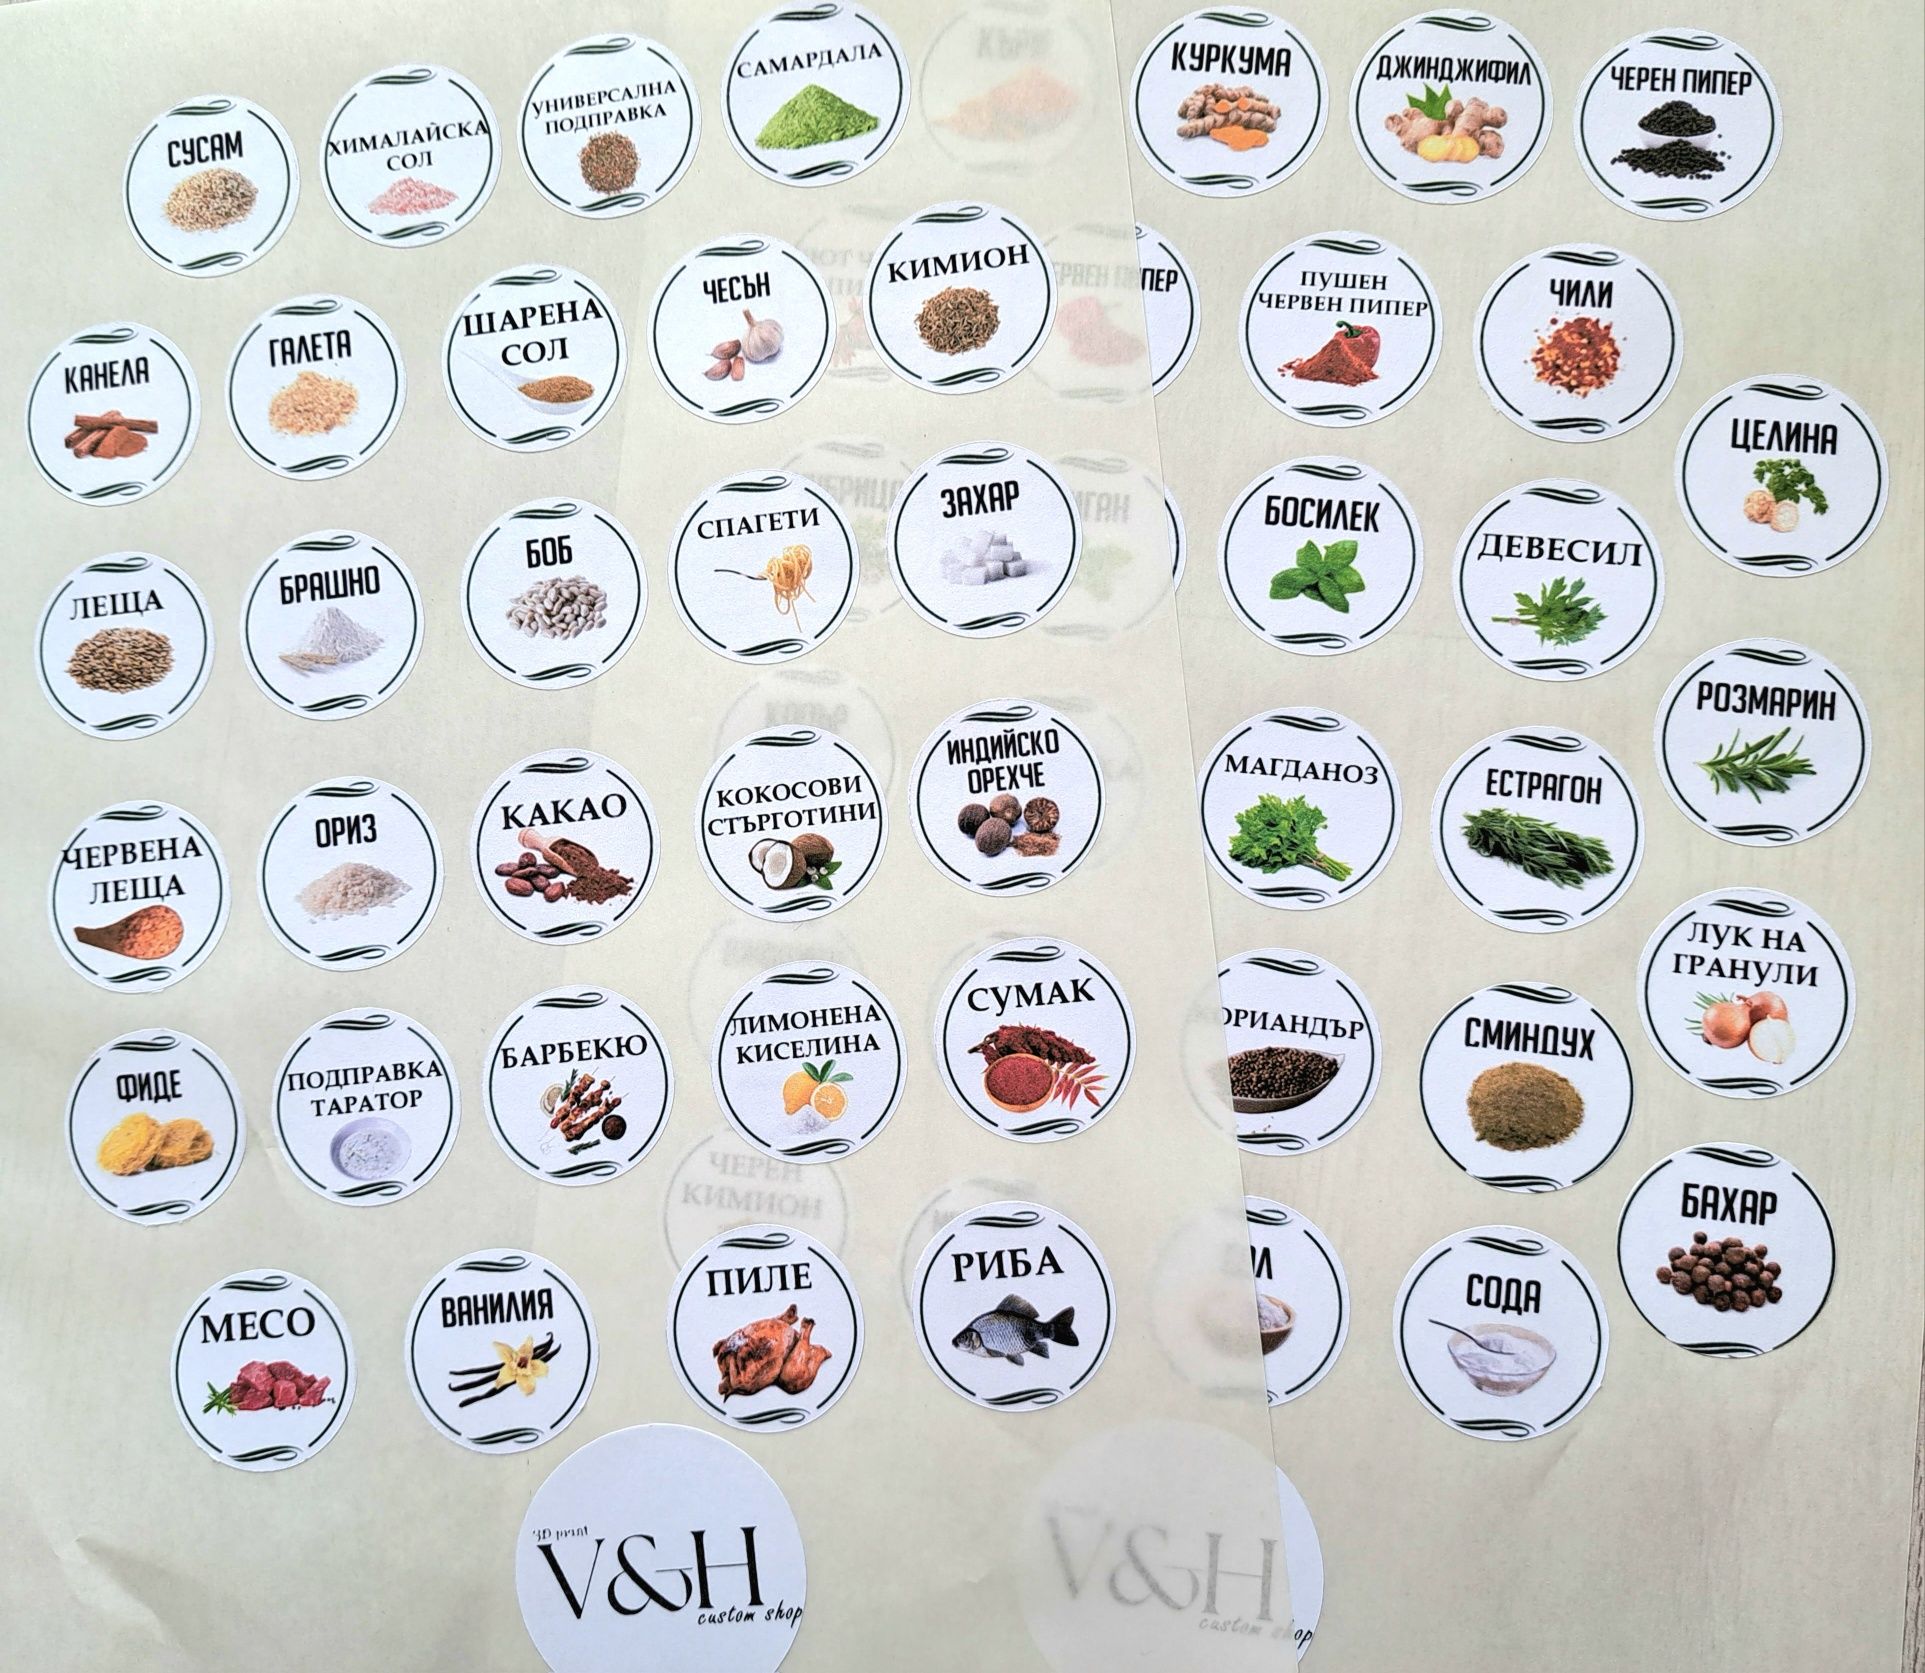 СУСАМ
ХИМАЛАЙСКА
СОЛ
УНИВЕРСАЛНА
ПОДПРАВКА
САМАРДАЛА
КУРКУМА
ДЖИНДЖИФИЛ
ЧЕРЕН ПИПЕР
КАНЕЛА
ГАЛЕТА
ШАРЕНА
СОЛ
ЧЕСЪН
КИМИОН
ЧЕРВЕН ПИПЕР
ПУШЕН
ЧЕРВЕН ПИПЕР
ЧИЛИ
ЦЕЛИНА
ЛЕЩА
БРАШНО
БОБ
СПАГЕТИ
ЗАХАР
БОСИЛЕК
ДЕВЕСИЛ
РОЗМАРИН
ЧЕРВЕНА
ЛЕЩА
ОРИЗ
КАКАО
КОКОСОВИ
СТЪРГОТИНИ
ИНДИЙСКО
ОРЕХЧЕ
МАГДАНОЗ
ЕСТРАГОН
ЛУК НА
ГРАНУЛИ
ФИДЕ
ПОДПРАВКА
ТАРАТОР
БАРБЕКЮ
ЛИМОНЕНА
КИСЕЛИНА
СУМАК
ОРИАНДЪР
СМИНДУХ
БАХАР
ЧЕРЕН
КИМИОН
МЕСО
ВАНИЛИЯ
ПИЛЕ
РИБА
СОДА
3D print
V&H
custom shop
V&H
custom shop